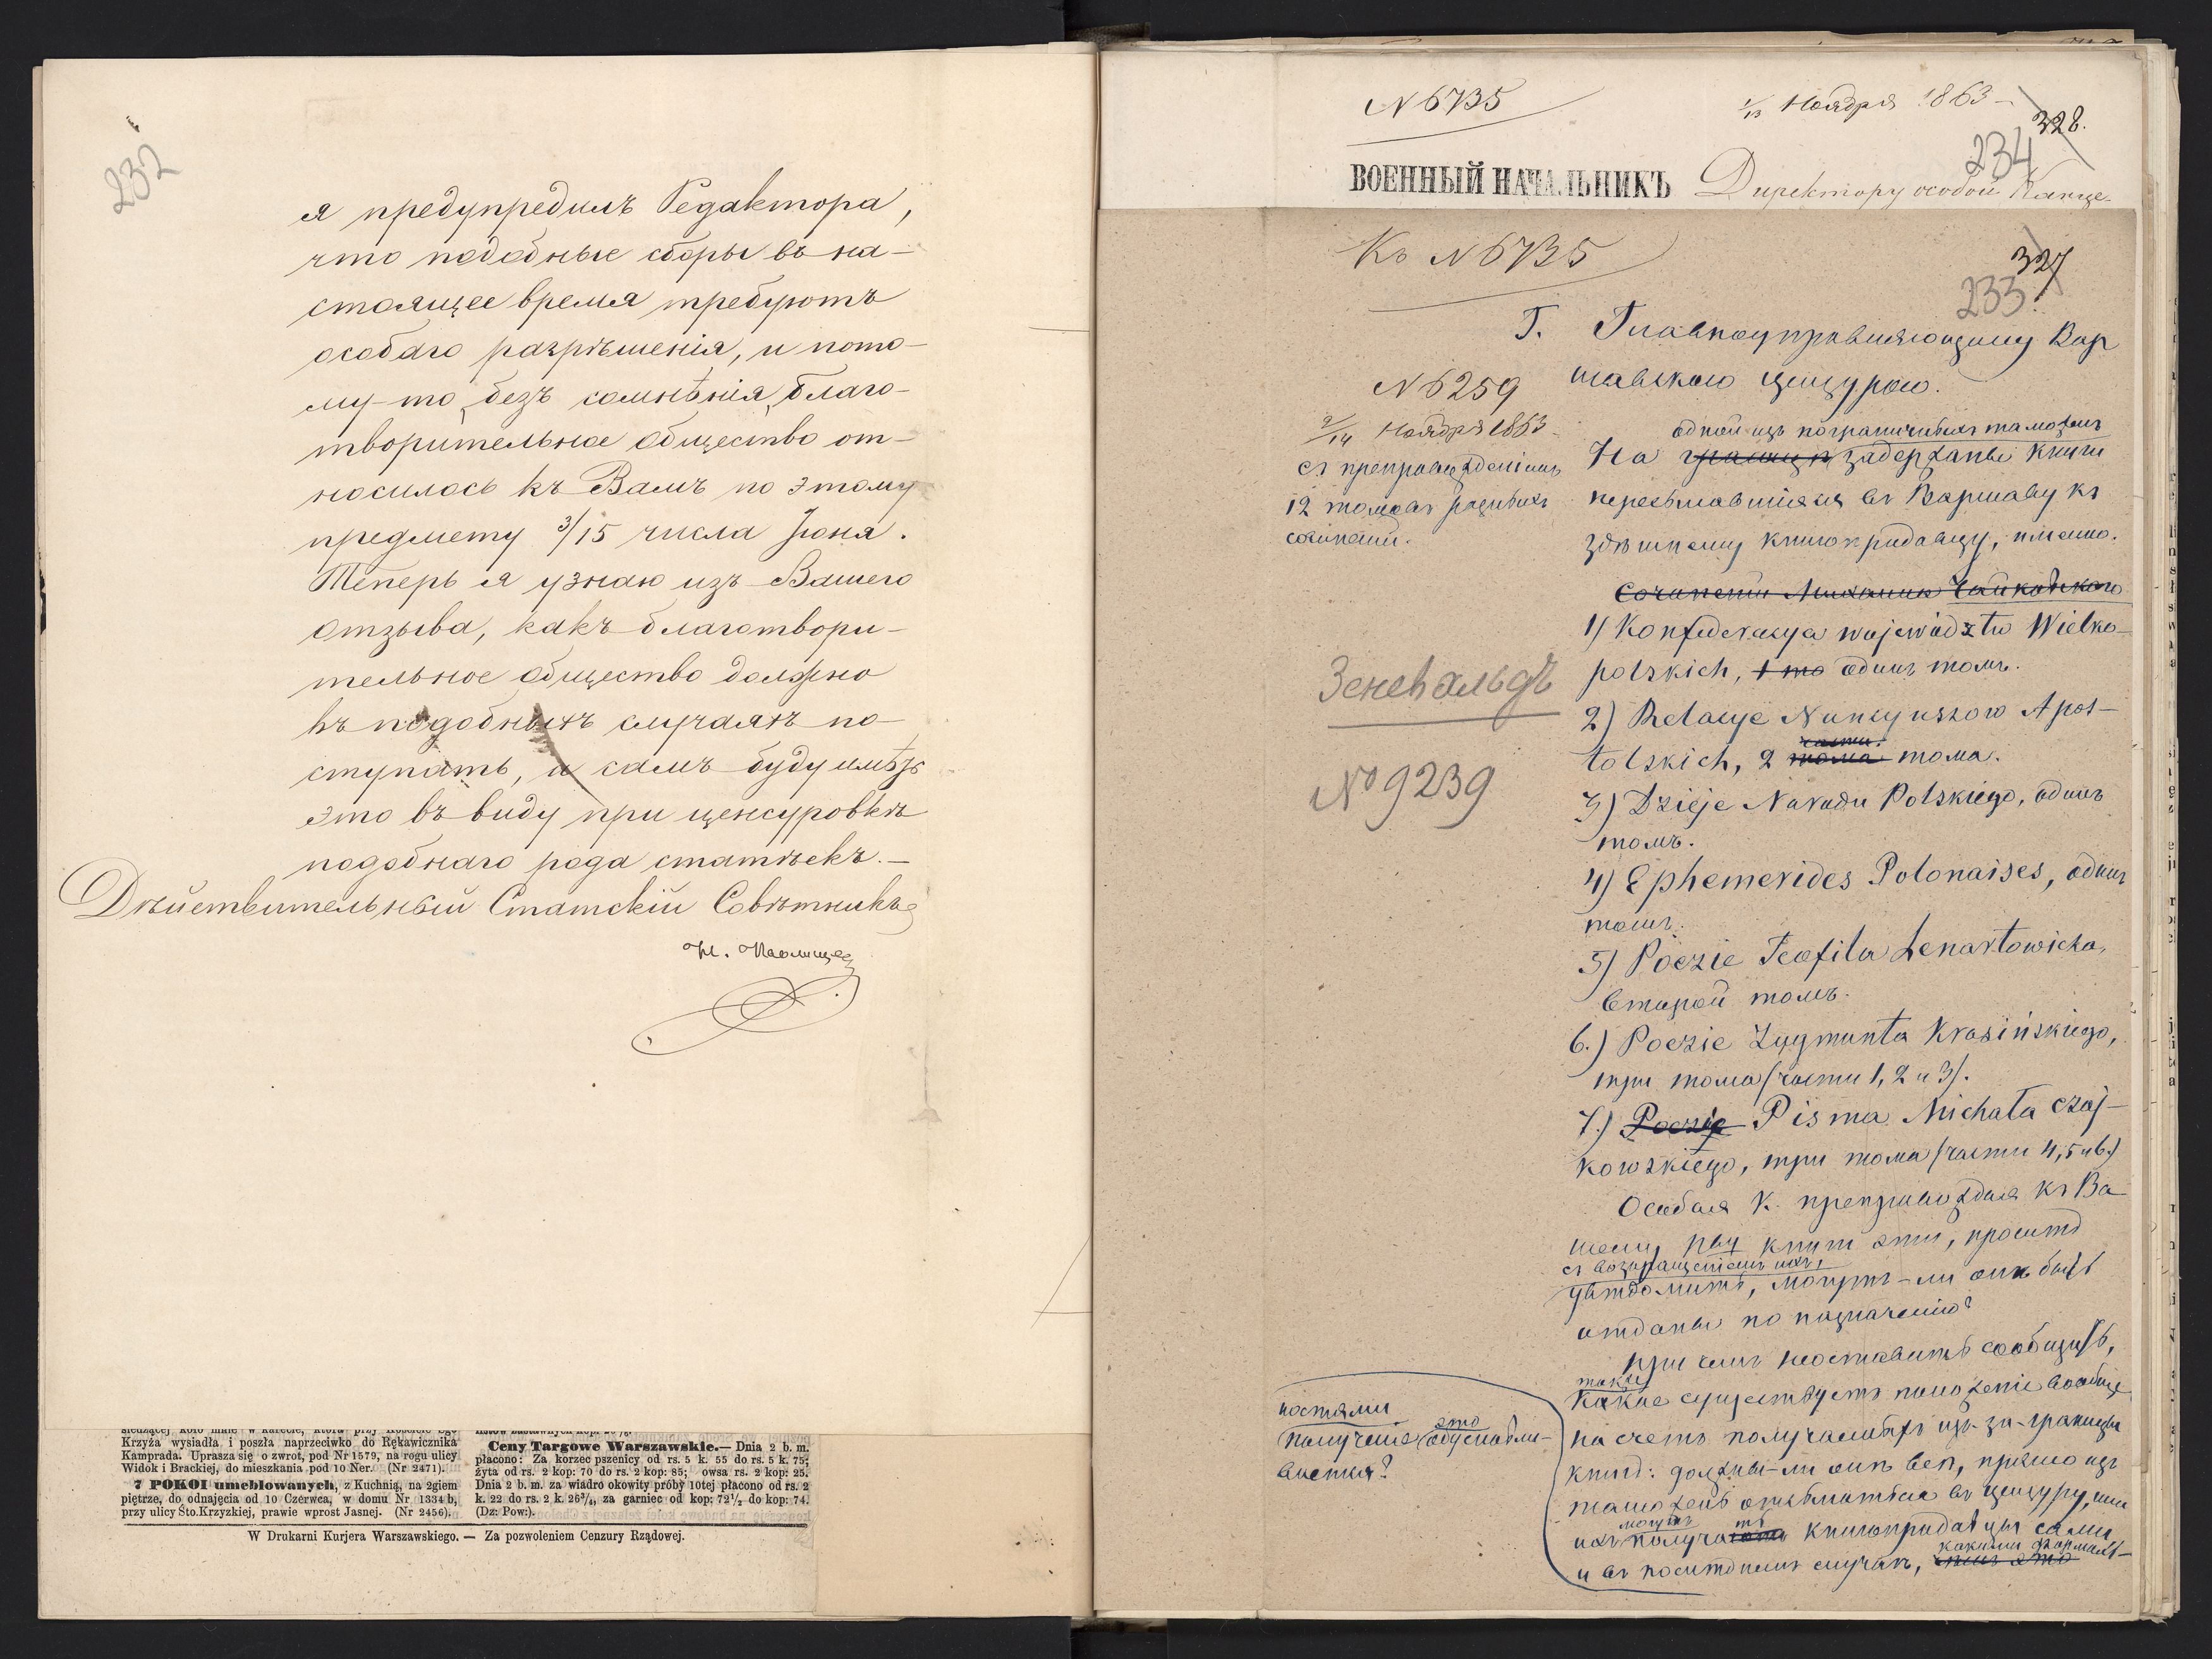 232
я предупредилъ Редактора,
что подобные сборы въ на-
стоящее время требуютъ
особаго разрѣшенія, и пото-
му-то, безъ сомнѣнія, благо-
творительное общество от-
носилось къ Вамъ по этому
предмету 3/15 числа Іюня.
Теперь я узнаю изъ Вашего
отзыва, какъ благотвори-
тельное общество должно
въ подобныхъ случаяхъ по-
ступать, и самъ буду имѣть
это въ виду при ценсуровкѣ
подобнаго рода статеекъ.—
Дѣйствительный Статскій Совѣтникъ
Krzyża wysiadła i poszła naprzeciwko do Rękawicznika
Kamprada. Uprasza się o zwrot, pod Nr 1579, na rogu ulicy
Widok i Brackiej, do mieszkania pod 10 Ner. (Nr 2471).
7 POKOI umeblowanych, z Kuchnią, na 2giem
piętrze, do odnajęcia od 10 Czerwca, w domu Nr 1334b,
przy ulicy Sto.Krzyzkiej, prawie wprost Jasnej. (Nr 2456).
Ceny Targowe Warszawskie.— Dnia 2 b. m.
płacono: Za korzec pszenicy od rs. 5 k. 55 do rs. 5 k. 75;
żyta od rs. 2 kop: 70 do rs. 2 kop: 85; owsa rs. 2 kop: 25.
Dnia 2 b. m. za wiadro okowity próby 10tej płacono od rs. 2
k. 22 do rs. 2 k. 26³/₄, za garniec od kop: 72¹/₂ do kop: 74.
(Dz: Pow:).
W Drukarni Kurjera Warszawskiego. — Za pozwoleniem Cenzury Rządowej.
N 6735
1/13 Ноября 1863 —
328.
234
ВОЕННЫЙ НАЧАЛЬНИКЪ
Директору особой Канце-
Къ N 6735
327
233
Г. Главноуправляющему Вар
шавскою цензурою.
N 6259
2/14 Ноября 1863
съ препровожденіемъ
12 томовъ разныхъ
сочиненій.
одной изъ пограничныхъ таможень
На границѣ задержаны книги
пересылавшіяся въ Варшаву къ
здѣшнему книгопродавцу, именно.
Сочиненія Михаила Чайковскаго
1) Konfederacya województw Wielko-
polskich, 1 то одинъ томъ.
2) Relacye Nuncyuszow Apos-
части
tolskich, 2 тома тома.
3) Dzieje Narodu Polskiego, одинъ
томъ.
4) Ephemerides Polonaises, одинъ
томъ.
5) Poezie Teofila Lenartowicza,
второй томъ.
6.) Poezie Zygmunta Krasińskiego,
три тома (части 1, 2 и 3).
7.) Poezie Pisma Michała Czaj-
kowskiego, три тома (части 4, 5 и 6.)
Зеневальдъ
№ 9239
Особая К. препровождая къ Ва
шему книги эти, проситъ
съ возвращеніемъ ихъ,
увѣдомить, могутъ-ли онѣ быть
отданы по назначенію?
При чемъ неоставить сообщить,
также
какое существуетъ положеніе вообще
на счетъ получаемыхъ изъ за-границы
книгъ: должны-ли онѣ всѣ, прямо изъ
таможень отсылаться въ цензуру, или
могутъ ть
ихъ получа книгопродавцы сами
какими формаль-
и въ послѣднемъ случаѣ, чѣмъ это
ностями
это
полученіе обусловли-
вается?